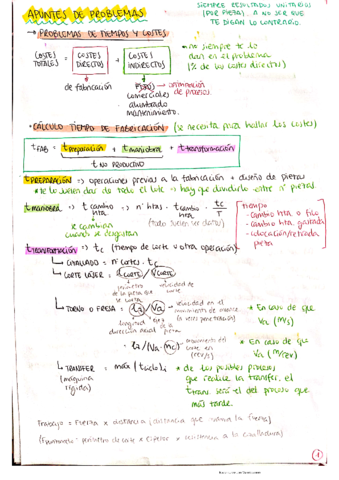 APUNTES DE PROBLEMAS
SIEMPRE RESULTADOS UNITARIOS
(POR PIEZA), A NO SER QUE
TE DIGAN LO CONTRARIO.
→ PROBLEMAS DE TIEMPOS Y COSTES
COSTES TOTALES = COSTES DIRECTOS + COSTES INDIRECTOS
→ no siempre te lo
dan en el problema
(% de los costes directos)
de fabricación
comerciales
alumbrado
mantenimiento.
• CÁLCULO TIEMPO DE FABRICACIÓN (se necesita para hallar los costes)
t FAB = t preparación + t maniobra + t transformación
t NO PRODUCTIVO
t PREPARACIÓN → operaciones previas a la fabricación + diseño de piezas
* te lo suelen dar de todo el lote → hay que dividirlo entre nº piezas.
t MANIOBRA → t cambio hta · nº htas · t cambio hta · tc/T
se cambian
cuando se desgastan
(todo suelen ser datos)
tiempo
- cambio hta o filo
- cambio hta gastada
- colocación/retirada
pieza
t TRANSFORMACIÓN → tc (tiempo de corte u otra operación)
↳ CIZALLADO = nº cortes · tc
↳ CORTE LÁSER = L corte / V corte
perímetro
de la pieza que
se corta
velocidad de
corte
↳ TORNO O FRESA = La / Va
→ velocidad en el
movimiento de avance
(la vel. penetración)
longitud
dirección axial
eje
de la
pieza
* En caso de que
Va (m/s)
· La / (Va · mc)
→ movimiento del
corte en
(rev/s)
* En caso de que
Va (m/rev)
↳ TRANSFER = max (t ciclo).
(máquina
rígida)
* de los posibles procesos
que realice la transfer, el
t trans. será el del proceso que
más tarde.
Trabajo = Fuerza × distancia (distancia que
(Punzonado: perímetro de corte × espesor × resistencia a la cizalladura)
1